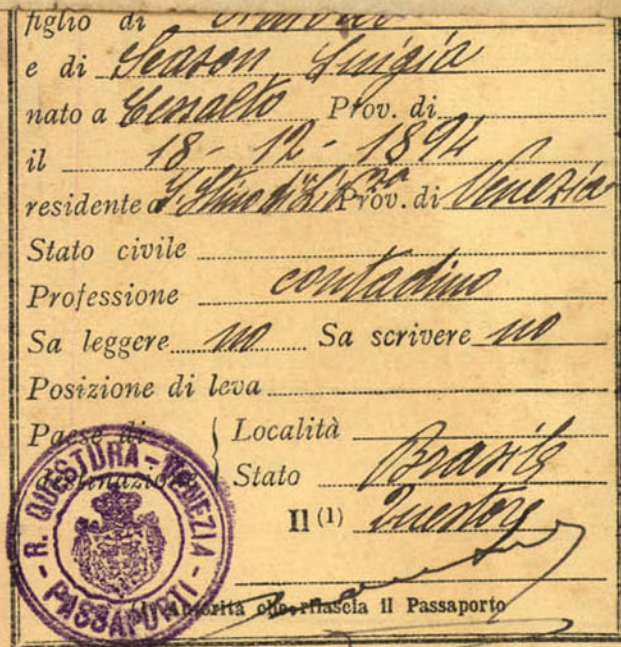 figlio di
e di Season Luigia
nato a Cessalto Prov. di
il 18 - 12 - 1894
residente a S. Stino di Liv.za Prov. di Venezia
Stato civile
Professione contadino
Sa leggere no Sa scrivere no
Posizione di leva
Paese di destinazione { Località
Stato Brasile
Il (1) Questore
R. QUESTURA - VENEZIA - PASSAPORTI -
(1) Autorità che rilascia il Passaporto